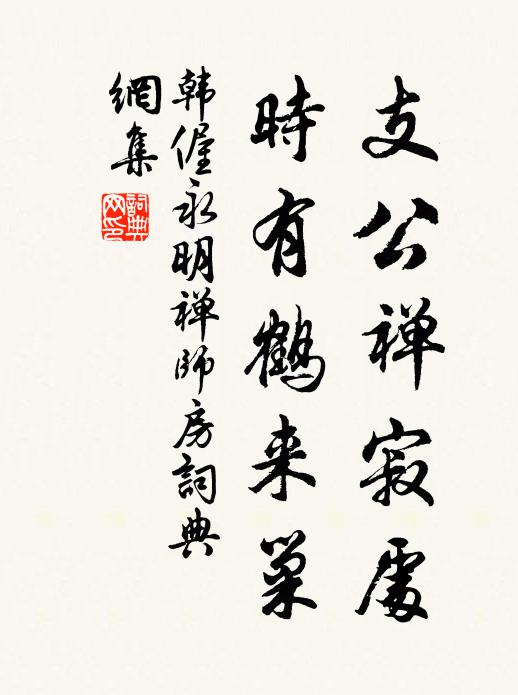 支公禅寂處
時有鶴来巢
韩偓永明禅師房詞典
網集
詞典
网印